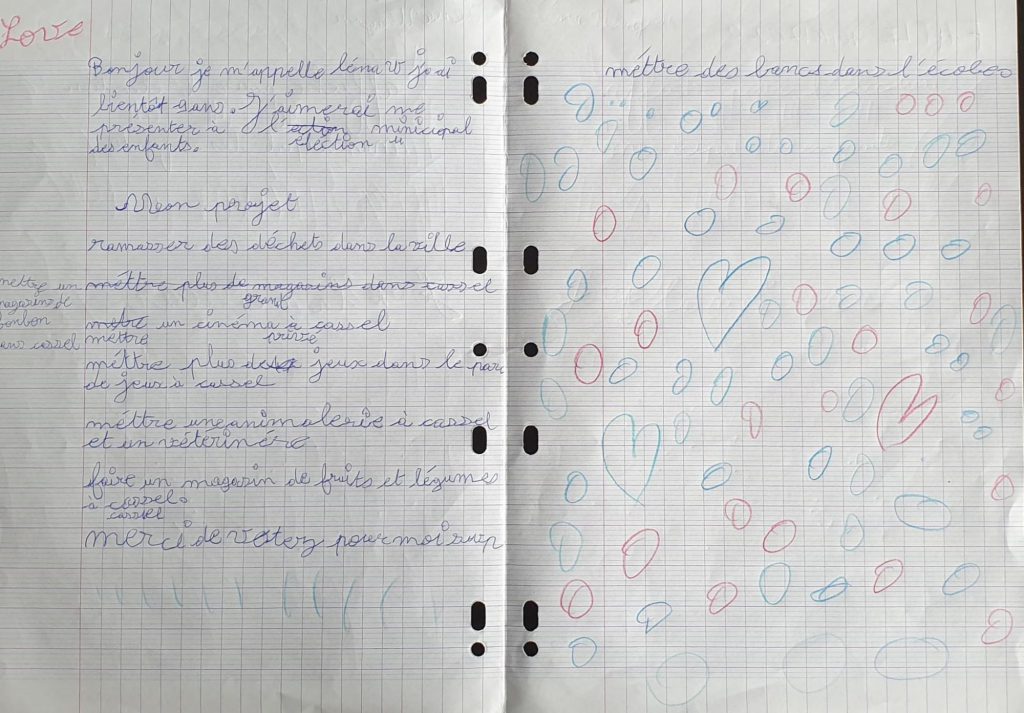 Love
Bonjour je m'appelle léna W j'ai
bientôt 9 ans. J'aimerai me
présenter à l'action minicipal
élection u
des enfants.
Mon projet
ramasser des déchets dans la ville
méttre plus de magasins dans cassel
mettre un
magasins de
bonbon
dans cassel
grand
metre un cinéma à cassel
mettre privé
méttre plus des jeux dans le parc
de jeux à cassel
méttre une animalerie à cassel
et un véterinére
faire un magasin de fruits et légumes
à cassel.
cassel
merci de votez pour moi svp
méttre des bancs dans l'école